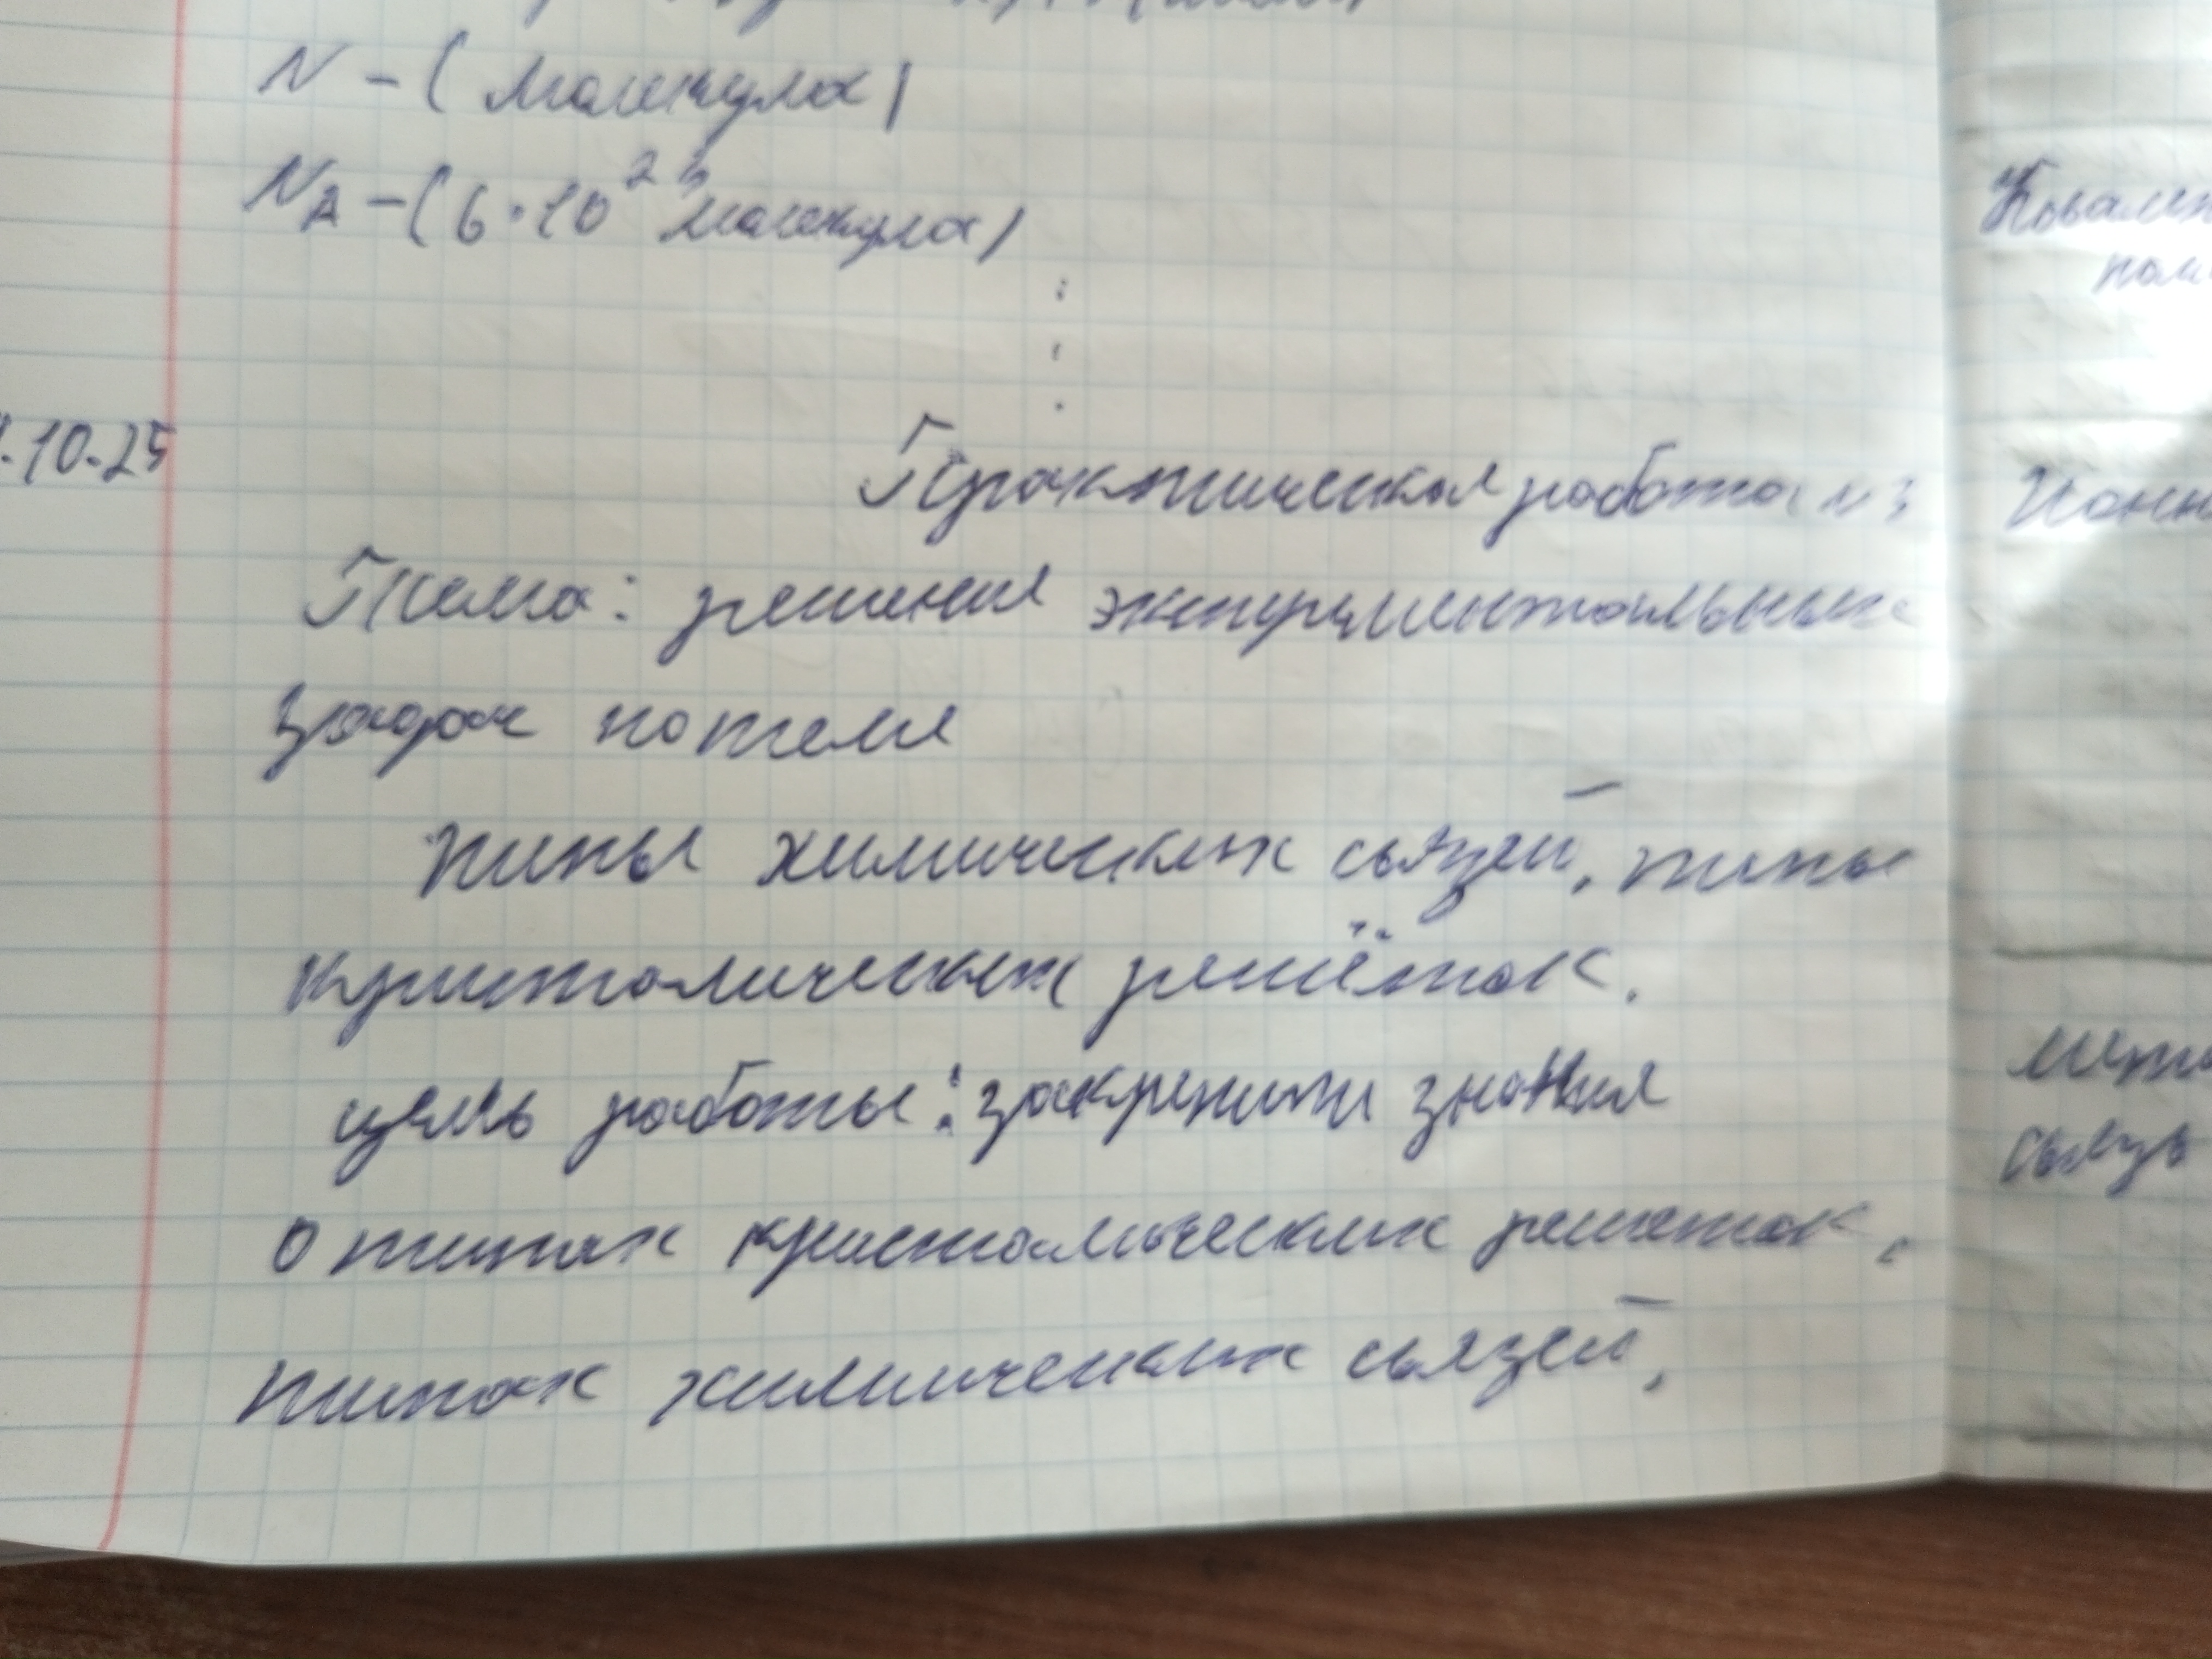 N - (молекула)
NA - (6·10²³ молекула)
.10.25
Практическая работа №3
Тема: решения экспериментальных
задач по теме
типы химических связей, типы
кристалических решёток.
цель работы: закрепити знания
о типах кристалических решеток,
типах химических связей,
связь